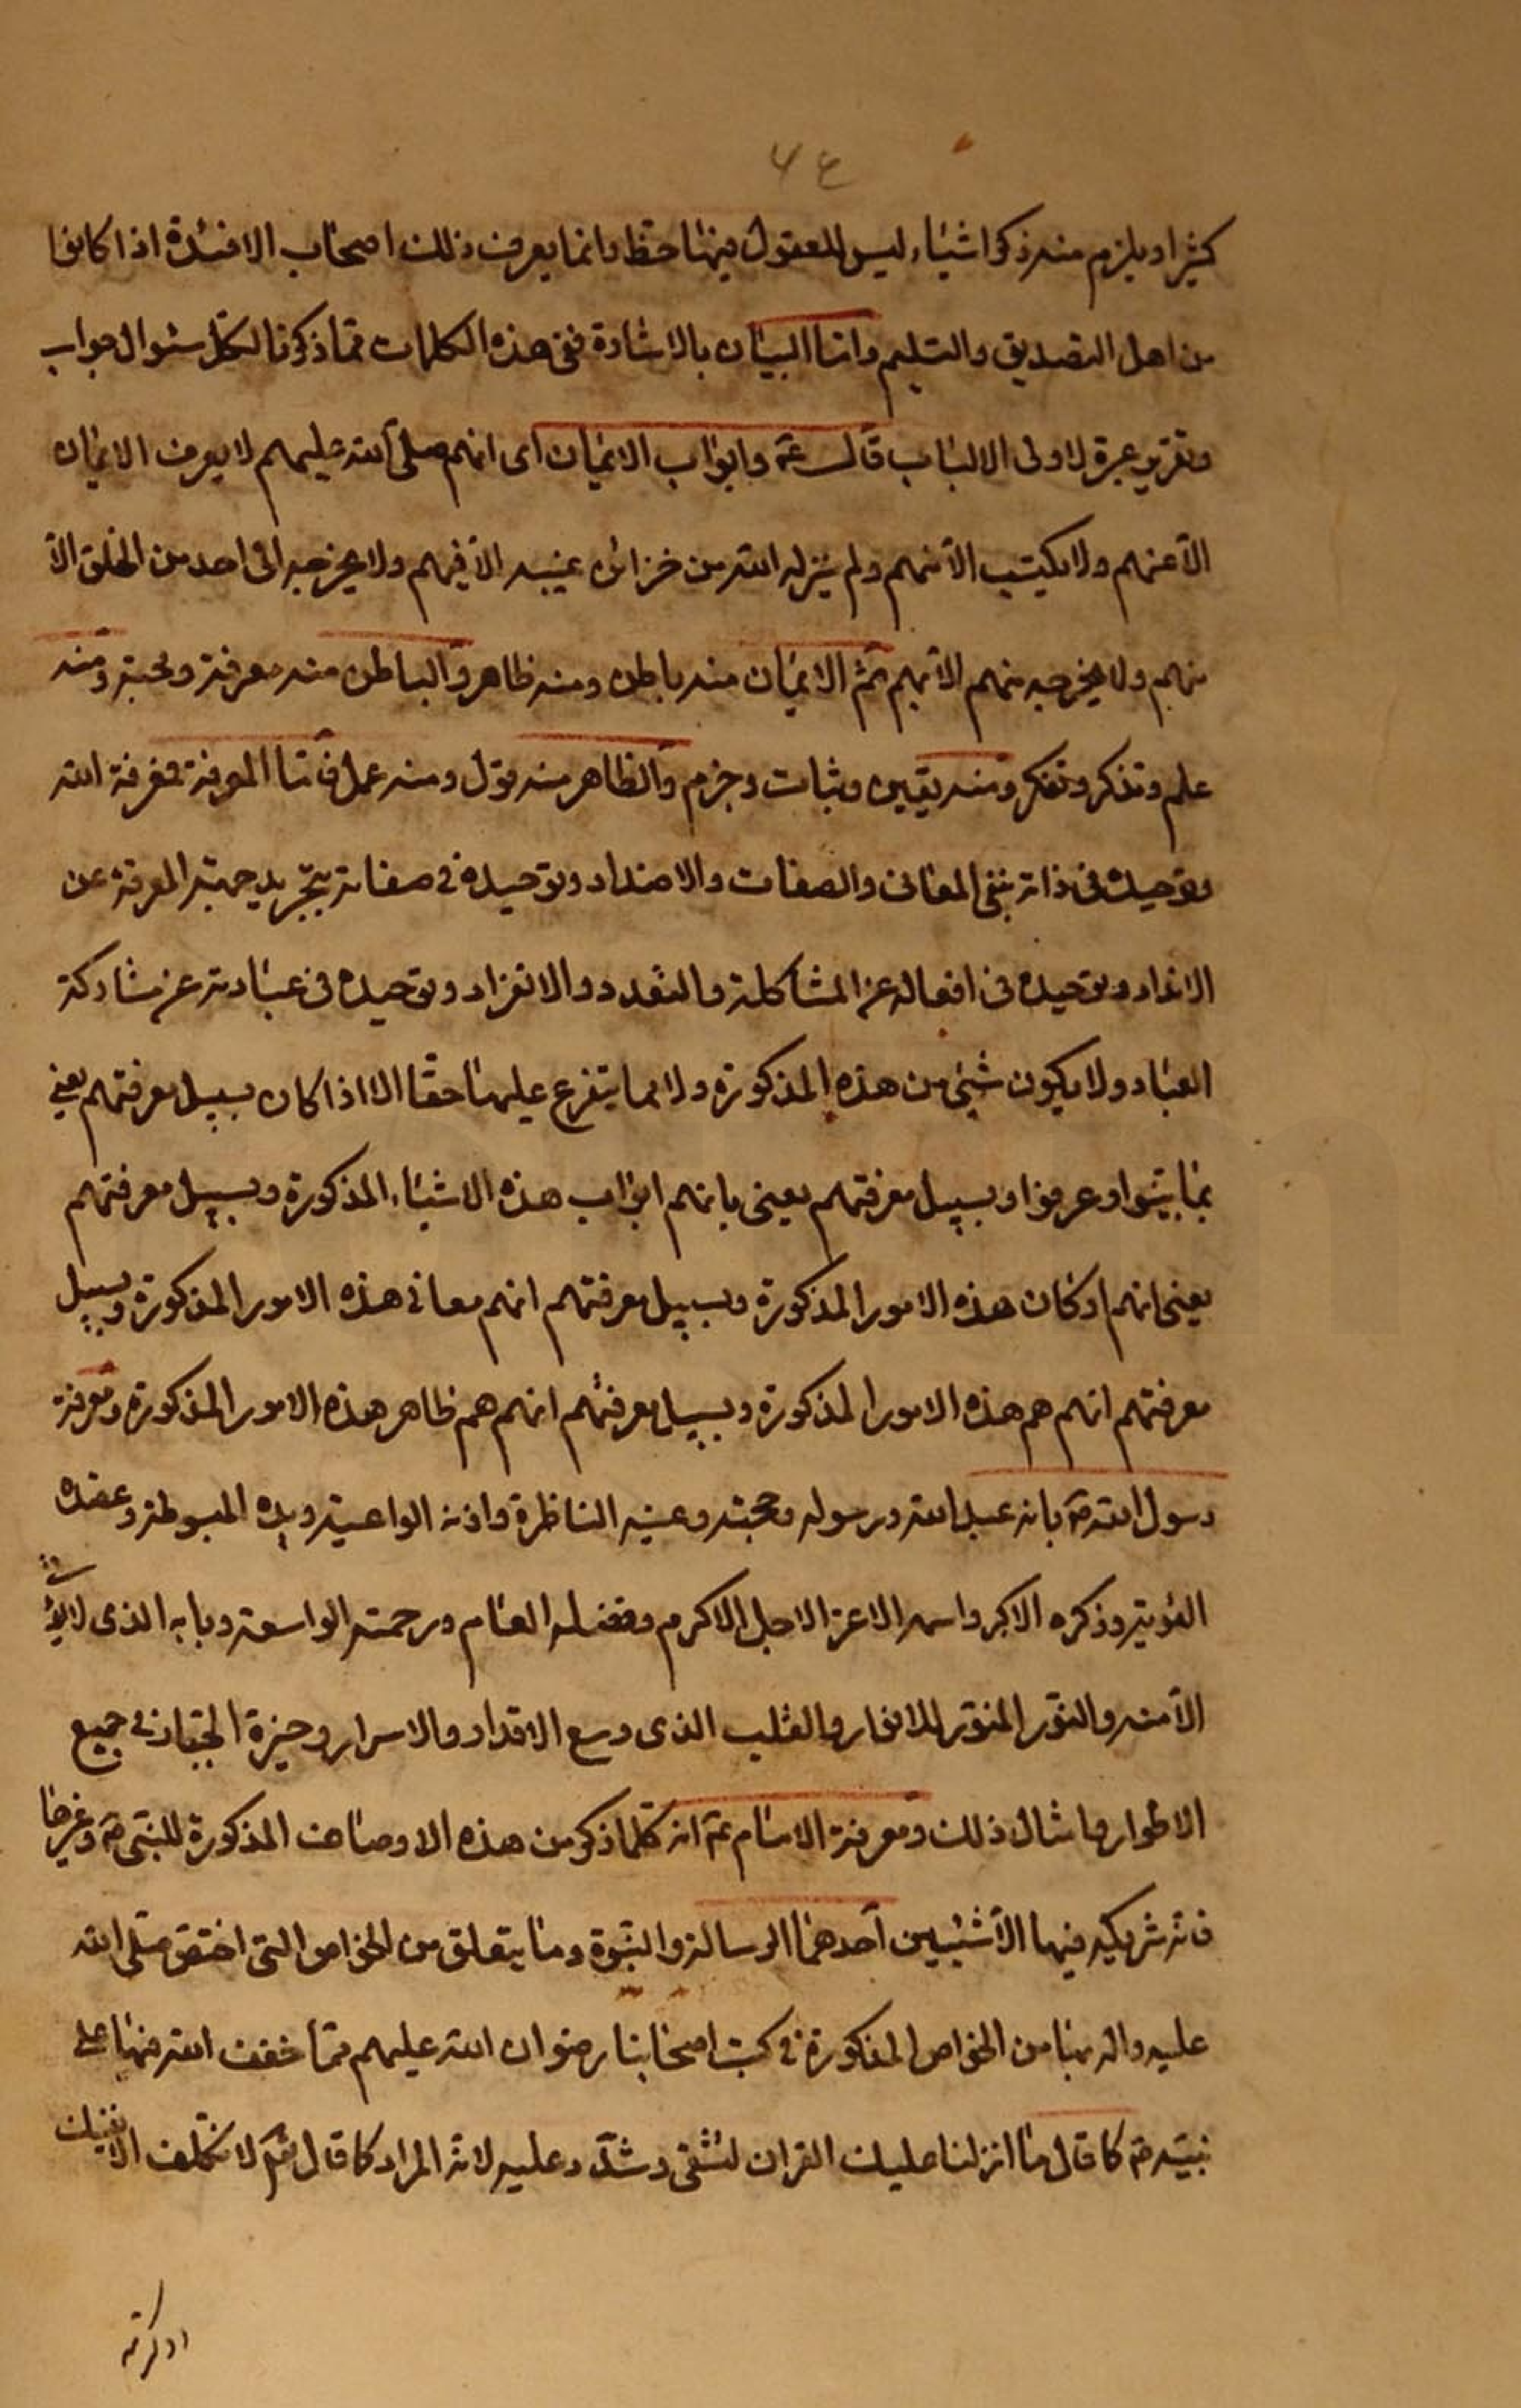 ۶۴
كثيرا ويلزم منه ذكر اشياء ليس للعقول فيها حظ وانما يعرف ذلك اصحاب الافئدة اذا كانوا
من اهل التصديق والتسليم واما البيان بالاشارة ففى هذه الكلمات مما ذكرنا لكل سئوال جواب
وتقرير عبرة لاولى الالباب قال ع وابواب الايمان اى انهم صلى الله عليهم لا يعرف الايمان
الا عنهم ولا يكتسب الا منهم ولم ينزله الله من خزائن غيبه الا فيهم ولا يخرجه الى احد من الخلق الا
منهم ولا يخرجه منهم الا بهم ثم الايمان منه باطن ومنه ظاهر والباطن منه معرفة ومحبة ومنه
علم وتذكر وتفكر ومنه يقين وثبات وجزم والظاهر منه قول ومنه عمل فاما المعرفة فمعرفة الله
وتوحيده فى ذاته بنفى المعانى والصفات والاضداد وتوحيده فى صفاته بتجريد جهة المعرفة عن
الانداد وتوحيده فى افعاله عن المشاكلة والتعدد والانفراد وتوحيده فى عبادته عن مشاركة
العباد ولا يكون شيئ من هذه المذكورة ولا مما يتفرع عليها حقا الا اذا كان بسبيل معرفتهم يعنى
بما بينوا وعرفوا وبسبيل معرفتهم يعنى بانهم ابواب هذه الاشياء المذكورة وبسبيل معرفتهم
يعنى انهم اركان هذه الامور المذكورة وبسبيل معرفتهم انهم معانى هذه الامور المذكورة وبسبيل
معرفتهم انهم هم هذه الامور المذكورة وبسبيل معرفتهم انهم هم ظاهر هذه الامور المذكورة ومعرفة
رسول الله ص بانه عبد الله ورسوله وحجته وعينه الناظرة واذنه الواعية ويده المبسوطة وعضده
القوية وذكره الاكبر واسمه الاعز الاجل الاكرم وفضله العام ورحمته الواسعة وبابه الذى لا يؤتى
الا منه والنور المنور للانوار والقلب الذى وسع الاقدار والاسرار وخيرة الجبار فى جميع
الاطوار وامثال ذلك ومعرفة الامام ع انه كلما ذكر من هذه الاوصاف المذكورة للنبى ص وغيرها
فانه شريكه فيها الا شيئين احدهما الرسالة والنبوة وما يتعلق من الخواص التى اختص صلى الله
عليه واله بها من الخواص المذكورة فى كتب اصحابنا رضوان الله عليهم مما خفف الله منها على
نبيه ص كما قال ما انزلنا عليك القران لتشقى وشدد عليه لانه المراد كما قال تع لا تكلف الا نفسك